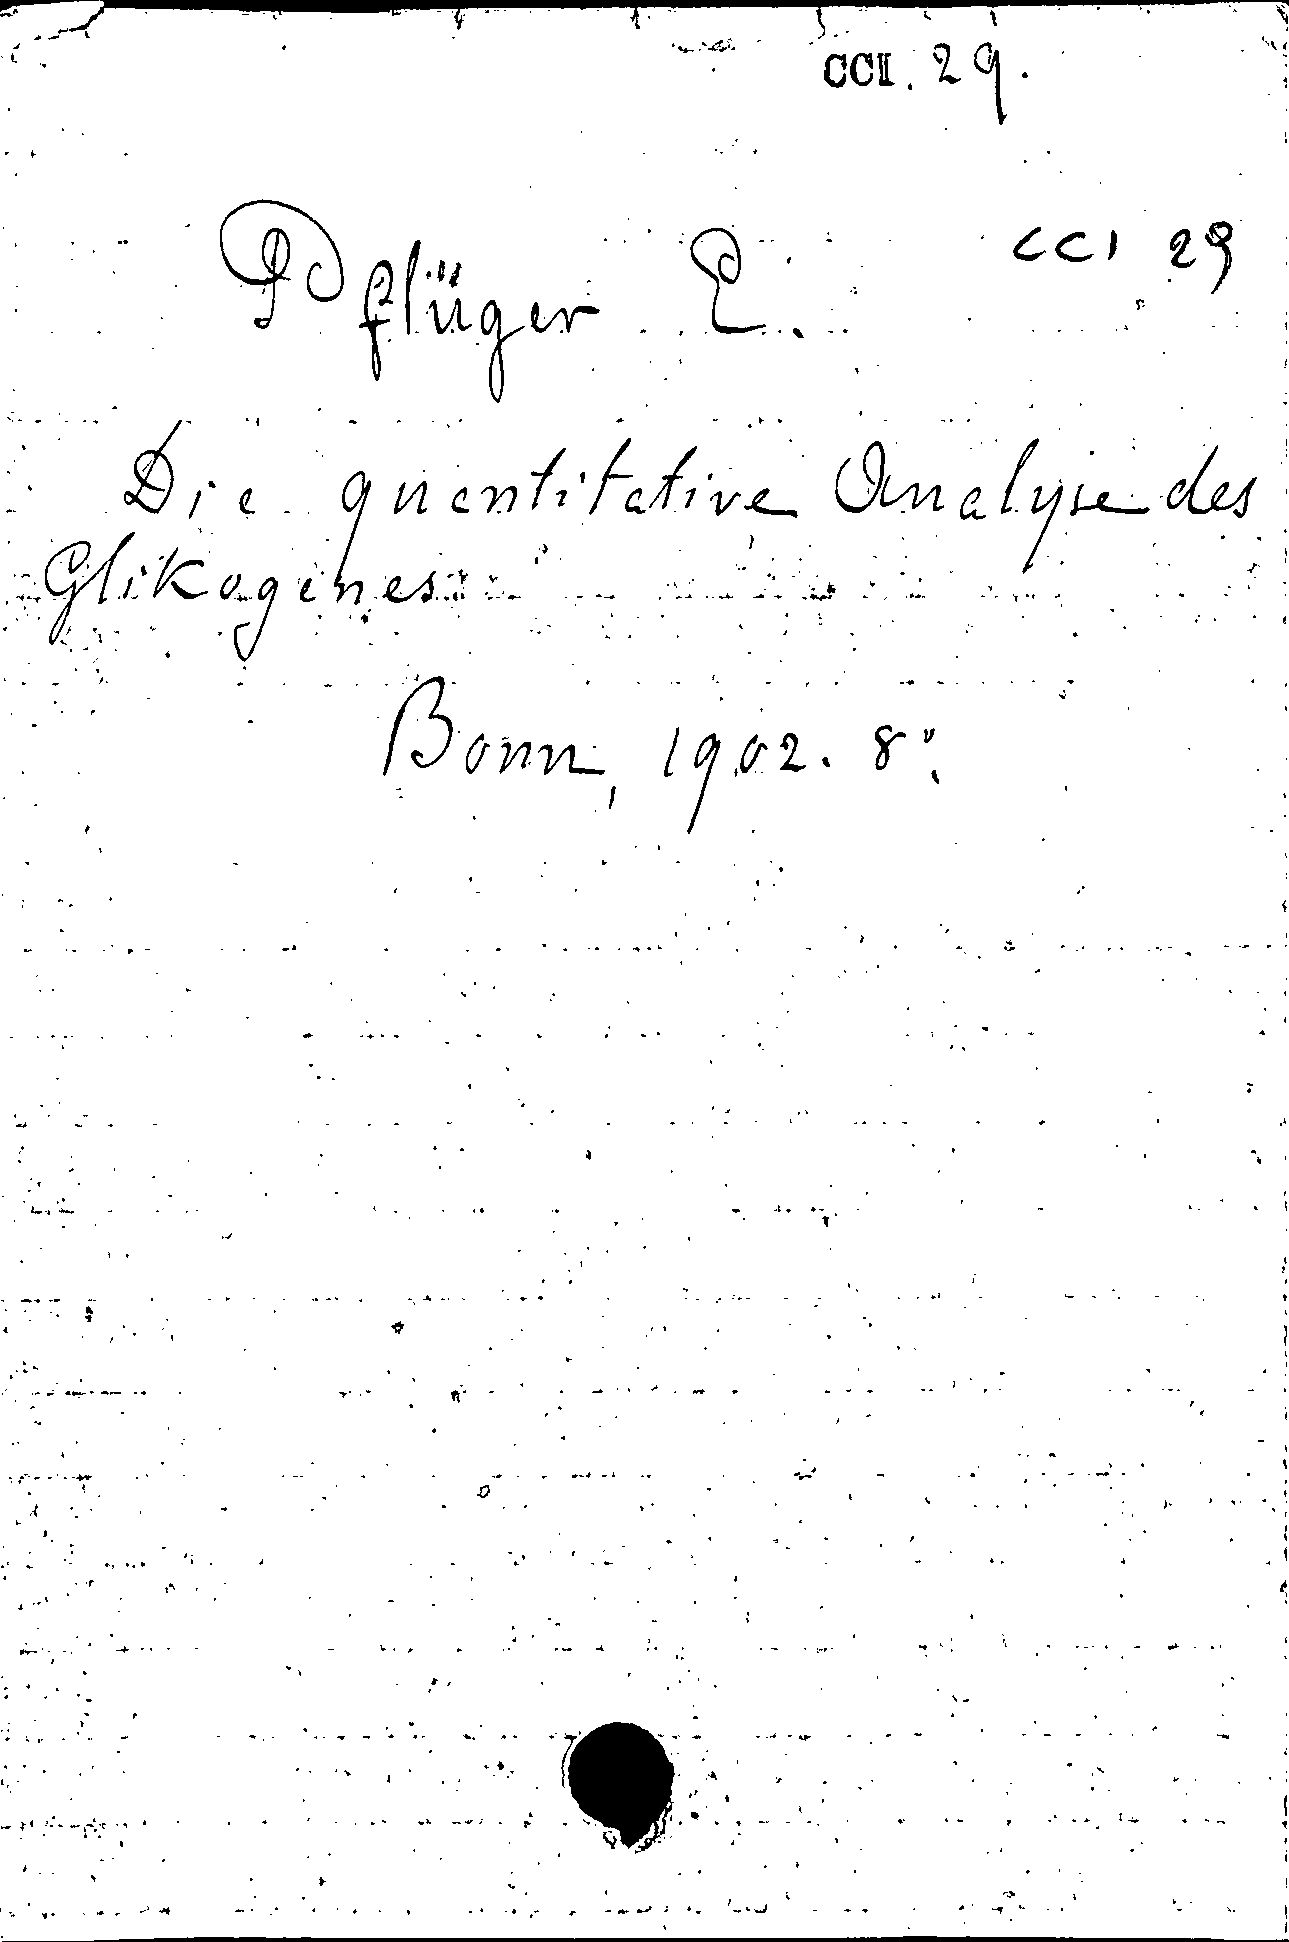 CCI. 29.
CCI 29
Pflüger E.
Die quantitative Analyse des
Glikogenes
Bonn, 1902. 8°.